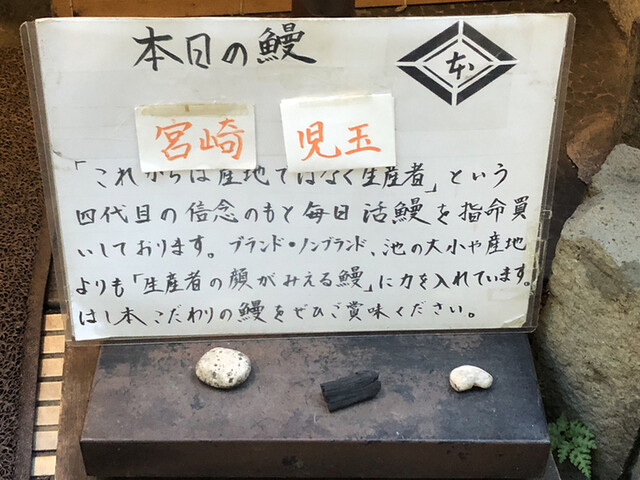 本日の鰻
本
宮崎 児玉
「これからは産地ではなく生産者」という
四代目の信念のもと毎日活鰻を指命買
いしております。ブランド・ノンブランド、池の大小や産地
よりも「生産者の顔がみえる鰻」に力を入れています。
はし本こだわりの鰻をぜひご賞味ください。